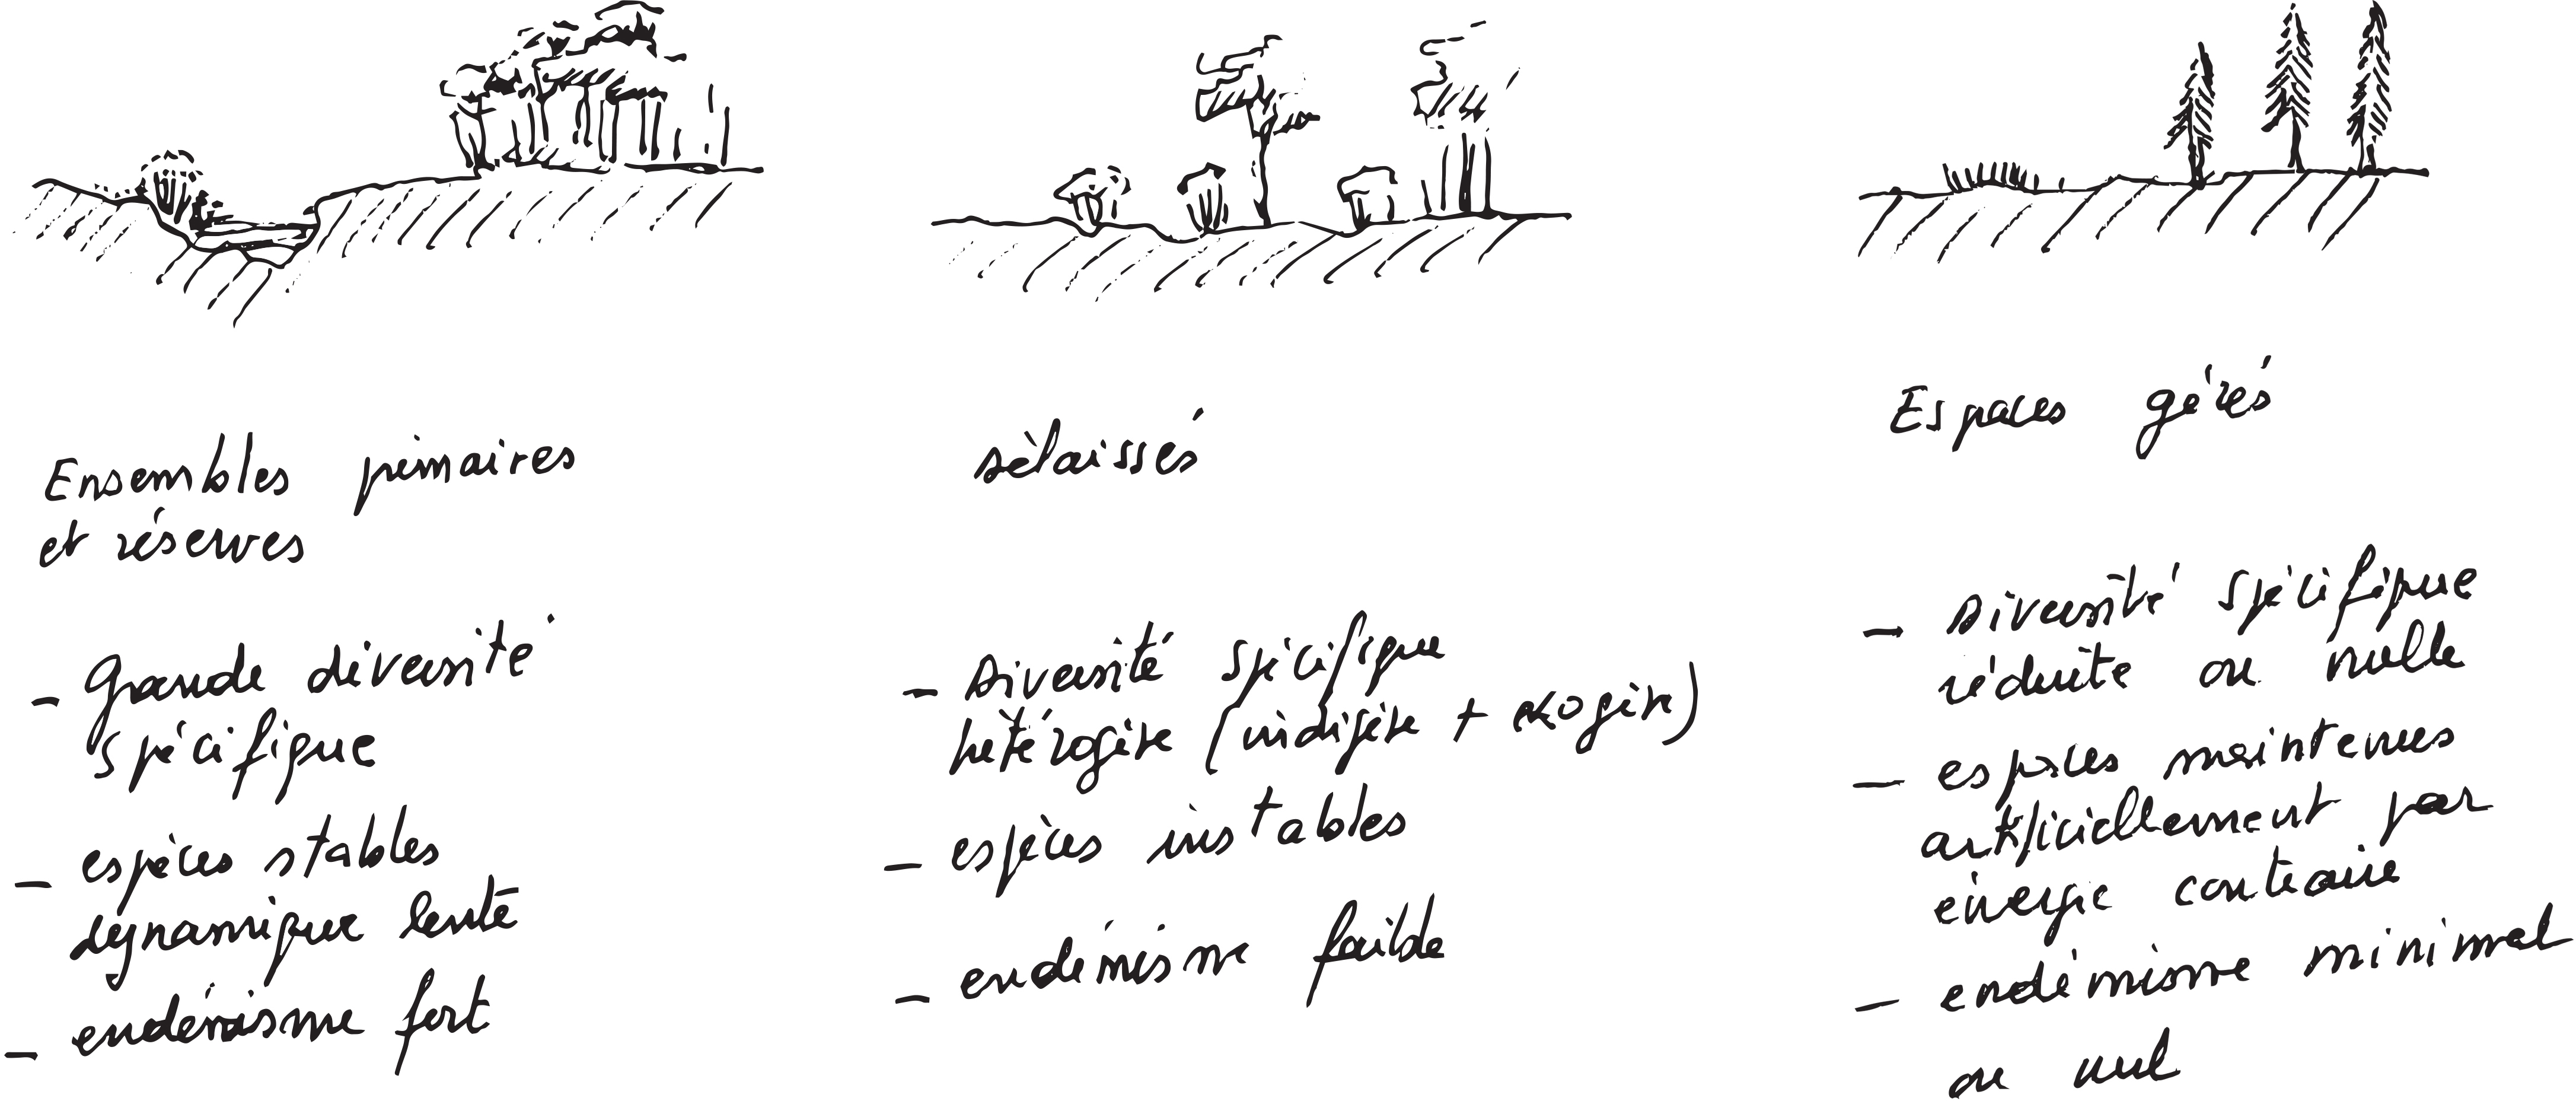 Ensembles primaires
et réserves
- Grande diversité
spécifique
- espèces stables
dynamique lente
- endémisme fort
délaissés
- Diversité spécifique
hétérogène (indigène + exogène)
- espèces instables
- endémisme faible
Espaces gérés
- Diversité spécifique
réduite ou nulle
- espaces maintenues
artificiellement par
énergie contraire
- endémisme minimal
ou nul